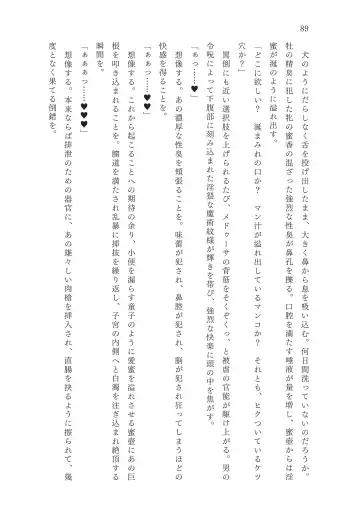 89
犬のようにだらしなく舌を投げ出したまま、大きく鼻から息を吸い込む。何日間洗っていないのだろうか。
牡の精臭に犯した牝の蜜香の混ざった強烈な性臭が鼻孔を擽る。口腔を満たす唾液が量を増し、蜜壺からは淫
蜜が涎のように溢れ出す。
「どこに欲しい？　涎まみれの口か？　マン汁が溢れ出しているマンコか？　それとも、ヒクついているケツ
穴か？」
罵倒にも近い選択肢を上げられるたび、メドゥーサの背筋をそくぞくっ、と被虐の官能が駆け上がる。男の
令呪によって下腹部に刻み込まれた淫猥な魔術紋様が輝きを帯び、強烈な快楽に頭の中を焦がす。
「ぁっ……♥♥」
想像する。あの濃厚な性臭を頬張ることを。味蕾が犯され、鼻腔が犯され、脳が犯され狂ってしまうほどの
快感を得ることを。
「ぁぁっ……♥♥♥」
想像する。これから起こることへの期待の余り、小便を漏らす童子のように愛蜜を溢れさせる蜜壺にあの巨
根を叩き込まれることを。膣道を満たされ乱暴に挿抜を繰り返し、子宮の内側へと白濁を注ぎ込まれ絶頂する
瞬間を。
「ぁぁぁっ……♥♥♥♥」
想像する。本来ならば排泄のための器官に、あの雄々しい肉槍を挿入され、直腸を抉るように擦られて、幾
度となく果てる倒錯を。